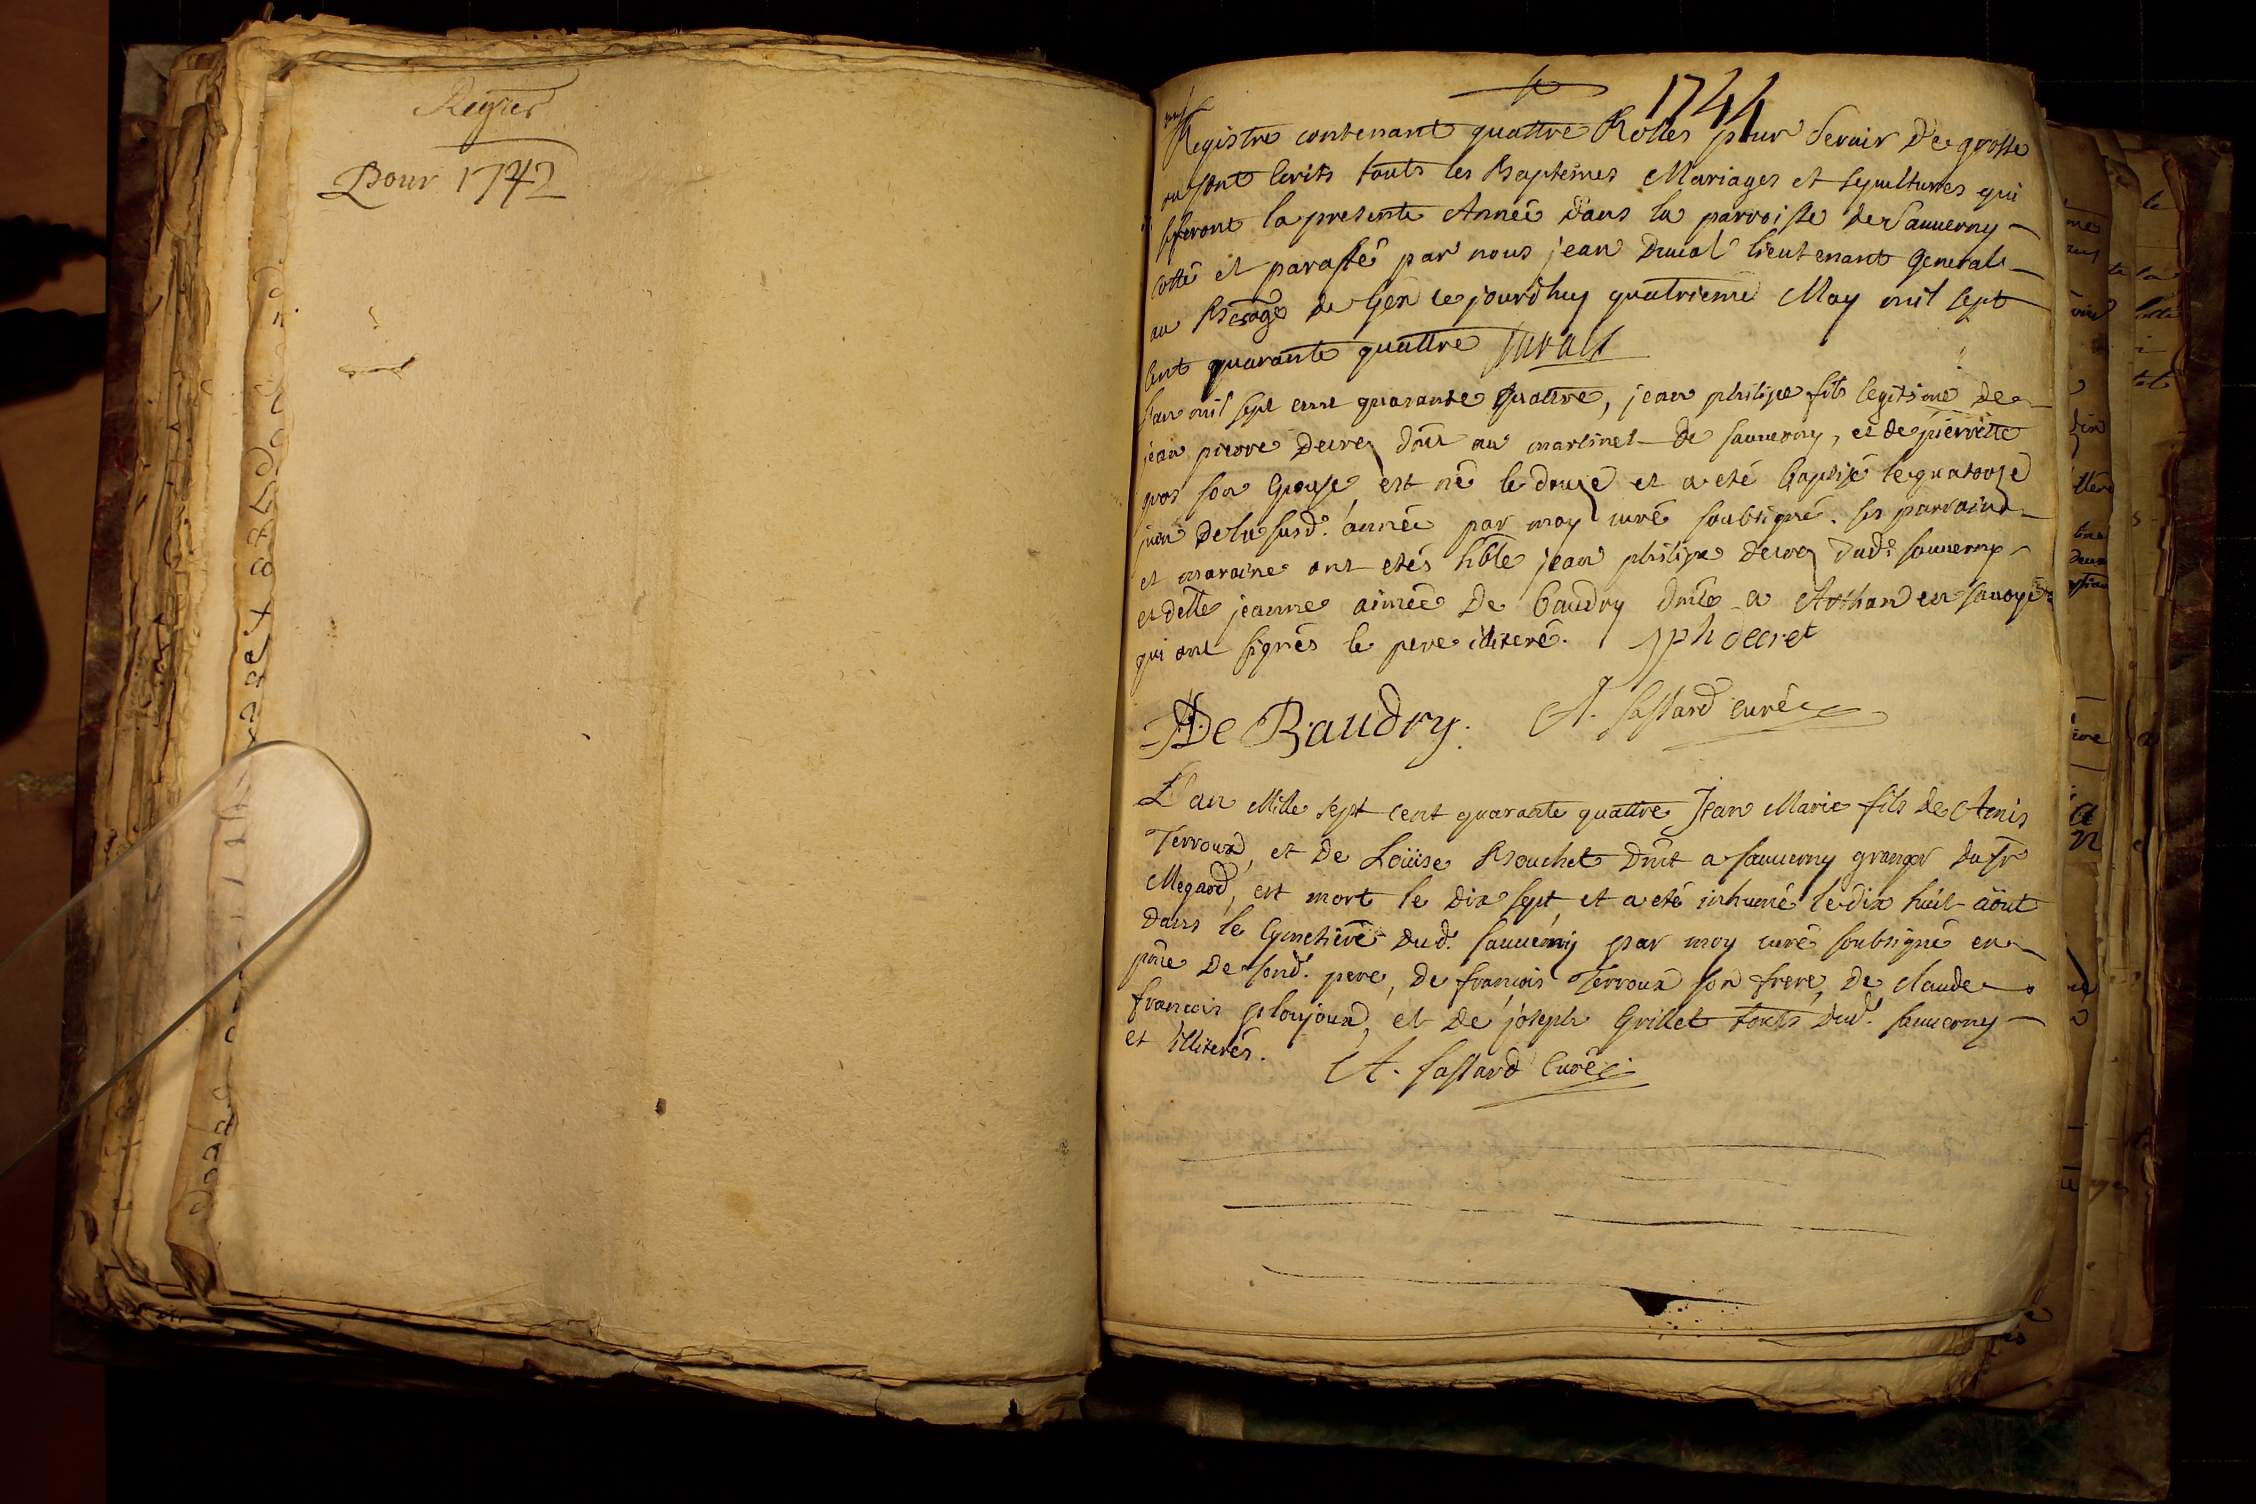 Regres
Pour 1742
1744
Registre contenant quattre Rolles pour servir de grosse
ou sont ecrits touts les Baptêmes Mariages et sepultures qui
se feront la presente Année dans la parroisse de Sauverny
cotté et paraffé par nous jean Duval lieutenant General
au Bâge de Gex ce jourdhuy quatrieme May mil sept
cent quarante quattre Duval
L'an mil sept cent quarante quattre, jean philipe fils legitime de
jean pierre Decrez dnt au martinet de sauverny, et de pierrette
gros son Epouse est né le douze et a eté baptisé le quatorze
juin de la susd. année par moy curé soubsigné. ses parrain
et maraine ont etés jean philipe decrez dud. sauverny
et delle jeanne aimée De baudry dnte a Arthan en savoye
qui ont signés le pere illiteré. J ph decret
De Baudry. A. sastard curé
L'an Mille sept cent quarante quattre Jean Marie fils de Amis
Terroux, et de Loüise Bouchet Dnt a sauverny granger du sr
Megard, est mort le dix sept, et a eté inhumé le dix huit août
dans le Cymetiere dud. sauverny par moy curé soubsigné en
pnce de sond. pere, de françois Terroux son frere, de claude
françois Ploujoux, et de joseph Grillet touts dud. sauverny
et illiterés. A. sastard Curé